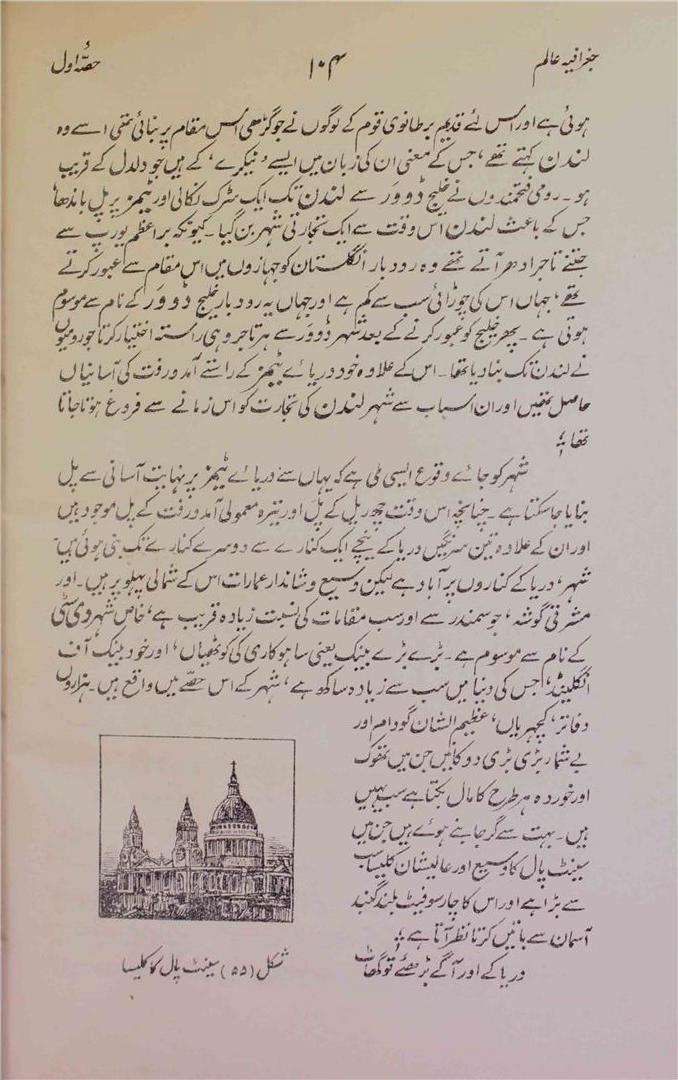 جغرافیہ عالم ۱۰۴ حصّہ اول
ہوئی ہے اور اس لئے قدیم برطانوی قوم کے لوگوں نے جو گڑھی اس مقام پر بنائی تھی اسے وہ
لندن کہتے تھے، جس کے معنی ان کی زبان میں ایسے ٹیکرے کے ہیں جو دلدل کے قریب
ہو۔ رومی فتحمندوں نے خلیج ڈوور سے لندن تک ایک سڑک نکالی اور ٹیمز پر پل باندھا
جس کے باعث لندن اس وقت سے ایک تجارتی شہر بن گیا۔ کیونکہ براعظم یورپ سے
جتنے تاجر ادھر آتے تھے وہ رودبار انگلستان کو جہازوں میں اس مقام سے عبور کرتے
تھے، جہاں اس کی چوڑائی سب سے کم ہے اور جہاں یہ رودبار خلیج ڈوور کے نام سے موسوم
ہوتی ہے۔ پھر خلیج کو عبور کرنے کے بعد شہر ڈوور سے ہر تاجر وہی راستہ اختیار کرتا جو رومیوں
نے لندن تک بنا دیا تھا۔ اس کے علاوہ خود دریائے ٹیمز کے راستے آمدورفت کی آسانیاں
حاصل تھیں اور ان اسباب سے شہر لندن کی تجارت کو اس زمانے سے فروغ ہوتا جاتا
تھا؛
شہر کو جائے وقوع ایسی ملی ہے کہ یہاں سے دریائے ٹیمز پر نہایت آسانی سے پل
بنایا جا سکتا ہے۔ چنانچہ اس وقت چھ ریل کے پل اور تیرہ معمولی آمدورفت کے پل موجود ہیں
اور ان کے علاوہ تین سرنگیں دریا کے نیچے ایک کنارے سے دوسرے کنارے تک بنی ہوئی ہیں۔
شہر، دریا کے کناروں پر آباد ہے لیکن وسیع و شاندار عمارات اس کے شمالی پہلو پر ہیں۔ اور
مشرقی گوشہ، جو سمندر سے اور سب مقامات کی نسبت زیادہ قریب ہے، خاص شہر وی سٹی
کے نام سے موسوم ہے۔ بڑے بڑے بینک یعنی ساہوکاری کی کوٹھیاں، اور خود بینک آف
انگلینڈ، جس کی دنیا میں سب سے زیادہ ساکھ ہے، شہر کے اس حصّے میں واقع ہیں۔ ہزاروں
دفاتر، کچہریاں، عظیم الشان گودام اور
بے شمار بڑی بڑی دوکانیں جن میں تھوک
اور خوردہ ہر طرح کا مال بکتا ہے سب یہیں
ہیں۔ بہت سے گرجا بنے ہوئے ہیں جن میں
سینٹ پال کا وسیع اور عالیشان کلیسا سب
سے بڑا ہے اور اس کا چار سو فیٹ بلند گنبد
آسمان سے باتیں کرتا نظر آتا ہے؛
دریا کے اور آگے بڑھئے تو گھاٹ
شکل (۵۵) سینٹ پال کا کلیسا